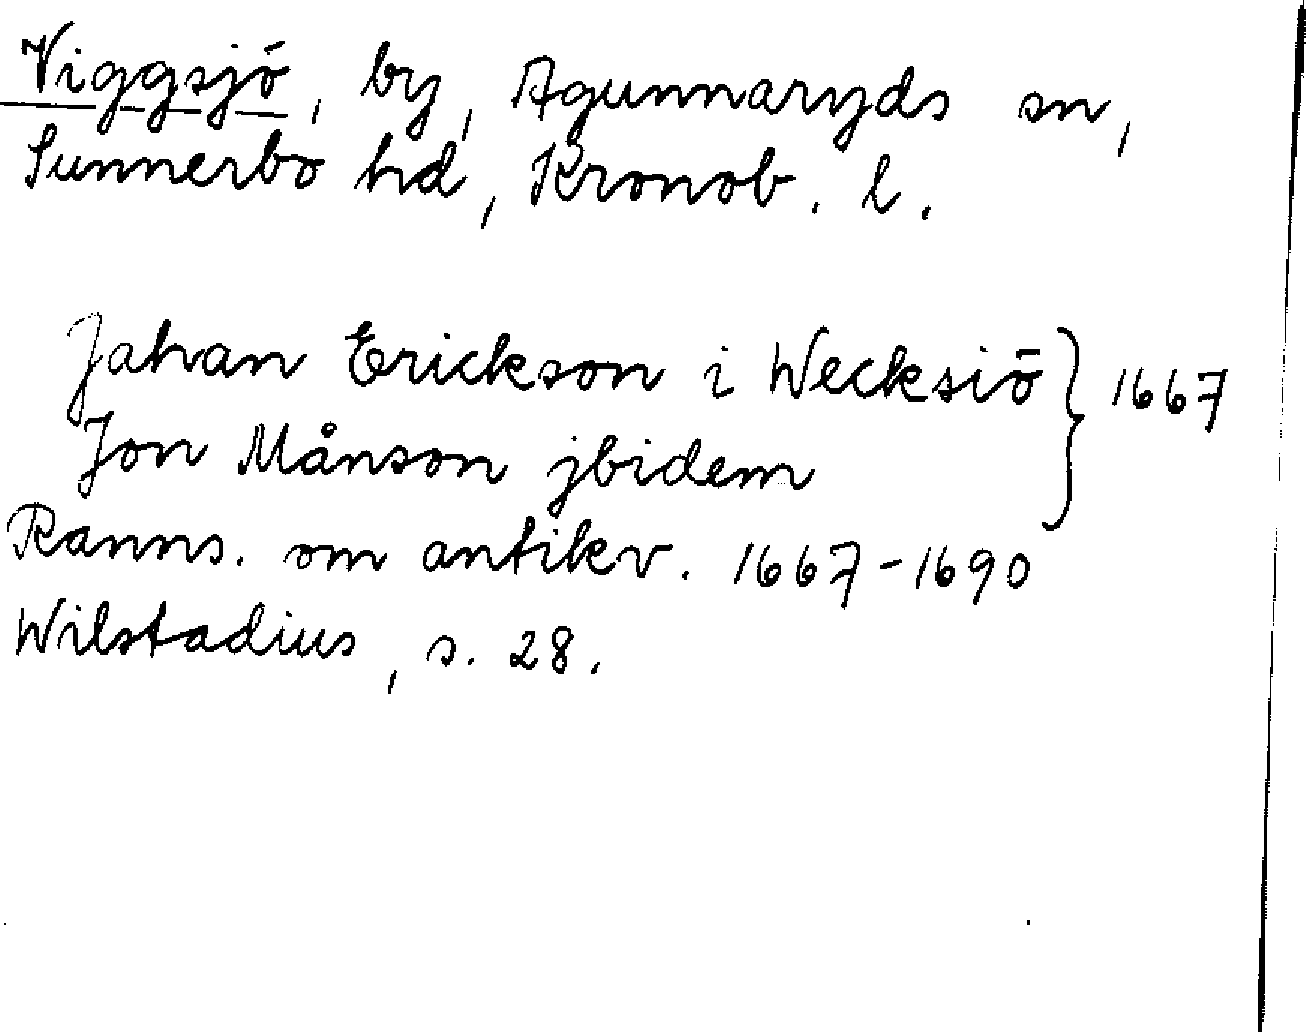 Viggsjö, by, Agunnaryds sn,
Sunnerbo hd, Kronob. l.
Jahan Erickson i Wecksiö } 1667
Jon Månson jbidem
Ranns. om antikv. 1667-1690
Wilstadius, s. 28.